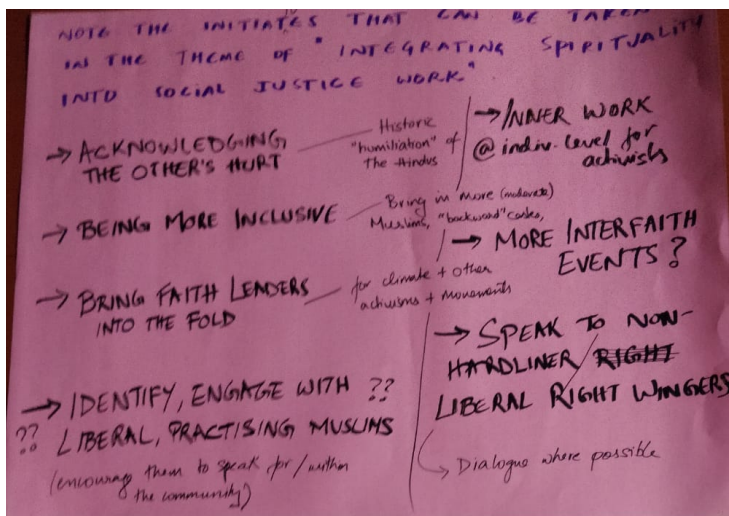 NOTE THE INITIATES THAT CAN BE TAKEN
IN THE THEME OF "INTEGRATING SPIRITUALITY
INTO SOCIAL JUSTICE WORK"
→ ACKNOWLEDGING
THE OTHER'S HURT
Historic
"humiliation" of
The Hindus
→ BEING MORE INCLUSIVE
Bring in more (moderate)
Muslims, "backward" castes,
→ BRING FAITH LEADERS
INTO THE FOLD
for climate + other
activisms + movements
→ IDENTIFY, ENGAGE WITH ??
?? LIBERAL, PRACTISING MUSLIMS
(encourage them to speak for/within
the community)
→ INNER WORK
@ indiv. level for
activists
→ MORE INTERFAITH
EVENTS?
→ SPEAK TO NON-
HARDLINER / RIGHT
LIBERAL RIGHT WINGERS
Dialogue where possible